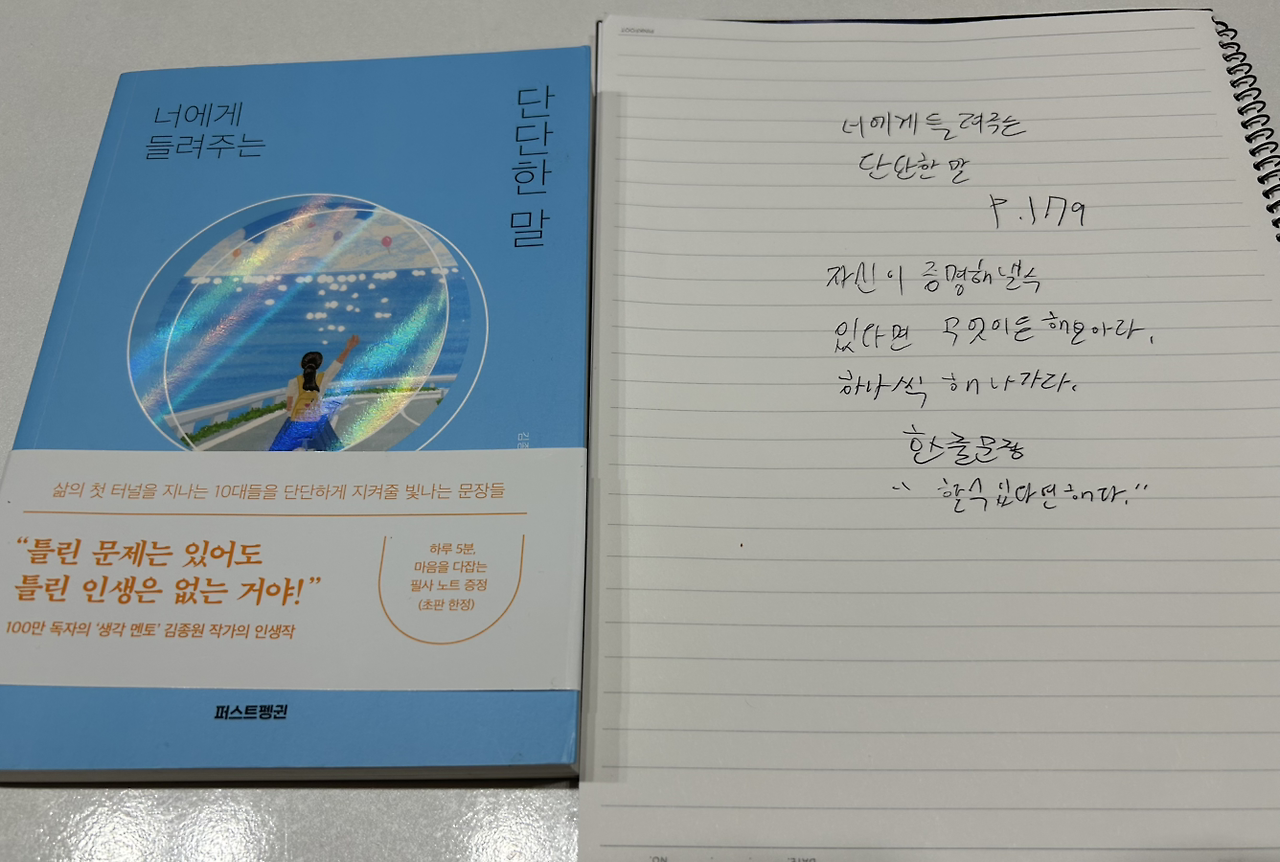 너에게
들려주는
단단한 말
삶의 첫 터널을 지나는 10대들을 단단하게 지켜줄 빛나는 문장들
“틀린 문제는 있어도
틀린 인생은 없는 거야!”
100만 독자의 ‘생각 멘토’ 김종원 작가의 인생작
하루 5분,
마음을 다잡는
필사 노트 증정
(초판 한정)
퍼스트펭귄
너에게 들려주는
단단한 말
P.179
자신이 증명해낼수
있다면 무엇이든 해보아라.
하나씩 해 나가라.
한스쿨문장
“ 할수 있다면 해다.”
DATE.
NO.